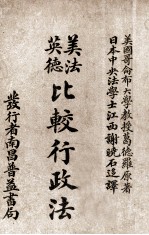 美國哥侖布大學教授葛德羅原著
日本中央法學士江西謝曉石迻譯
美法
英德
比較行政法
發行者南昌普益書局